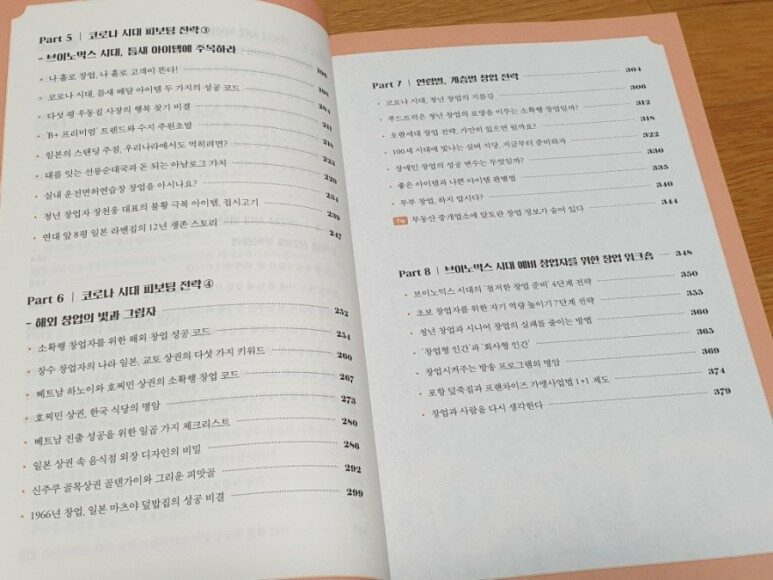 Part 5 | 코로나 시대 피보팅 전략③
- 브이노믹스 시대, 틈새 아이템에 주목하라
• 나 홀로 창업, 나 홀로 고객이 뜬다! 196
• 코로나 시대, 틈새 배달 아이템 두 가지의 성공 코드 198
• 다섯 평 우동집 사장의 행복 찾기 비결 204
• 'B+ 프리미엄' 트렌드와 수지 주원초밥 211
• 일본의 스탠딩 주점, 우리나라에서도 먹히려면? 218
• 대를 잇는 선릉순대국과 돈 되는 아날로그 가치 223
• 실내 운전면허연습장 창업을 아시나요? 229
• 청년 창업자 장천웅 대표의 불황 극복 아이템, 접시고기 234
• 연대 앞 8평 일본 라멘집의 12년 생존 스토리 239
247
Part 6 | 코로나 시대 피보팅 전략④
- 해외 창업의 빛과 그림자 252
• 소확행 창업자를 위한 해외 창업 성공 코드 254
• 장수 창업자의 나라 일본, 교토 상권의 다섯 가지 키워드 260
• 베트남 하노이와 호찌민 상권의 소확행 창업 코드 267
• 호찌민 상권, 한국 식당의 명암 273
• 베트남 진출 성공을 위한 일곱 가지 체크리스트 280
• 일본 상권 속 음식점 외장 디자인의 비밀 286
• 신주쿠 골목상권 골덴가이와 그리운 피맛골 292
• 1966년 창업, 일본 마츠야 덮밥집의 성공 비결 299
Part 7 | 연령별, 계층별 창업 전략 304
• 코로나 시대, 청년 창업의 지름길 306
• 푸드트럭은 청년 창업의 로망을 이루는 소확행 창업일까? 312
• 오팔세대 창업 전략, 가만히 있으면 될까요? 318
• 100세 시대에 빛나는 실버 식당, 지금부터 준비하자 322
• 장애인 창업의 성공 변수는 무엇일까? 330
• 좋은 아이템과 나쁜 아이템 판별법 335
• 부부 창업, 하지 맙시다? 340
Tip 부동산 중개업소에 알토란 창업 정보가 숨어 있다 344
Part 8 | 브이노믹스 시대 예비 창업자를 위한 창업 워크숍 348
• 브이노믹스 시대의 '천저한 창업 준비' 4단계 전략 350
• 초보 창업자를 위한 자기 역량 높이기 7단계 전략 355
• 청년 창업과 시니어 창업의 실패를 줄이는 방법 360
• '창업형 인간'과 '회사형 인간' 365
• 창업시켜주는 방송 프로그램의 명암 369
• 포항 덮죽집과 프랜차이즈 가맹사업법 1+1 제도 374
• 창업과 사람을 다시 생각한다 379